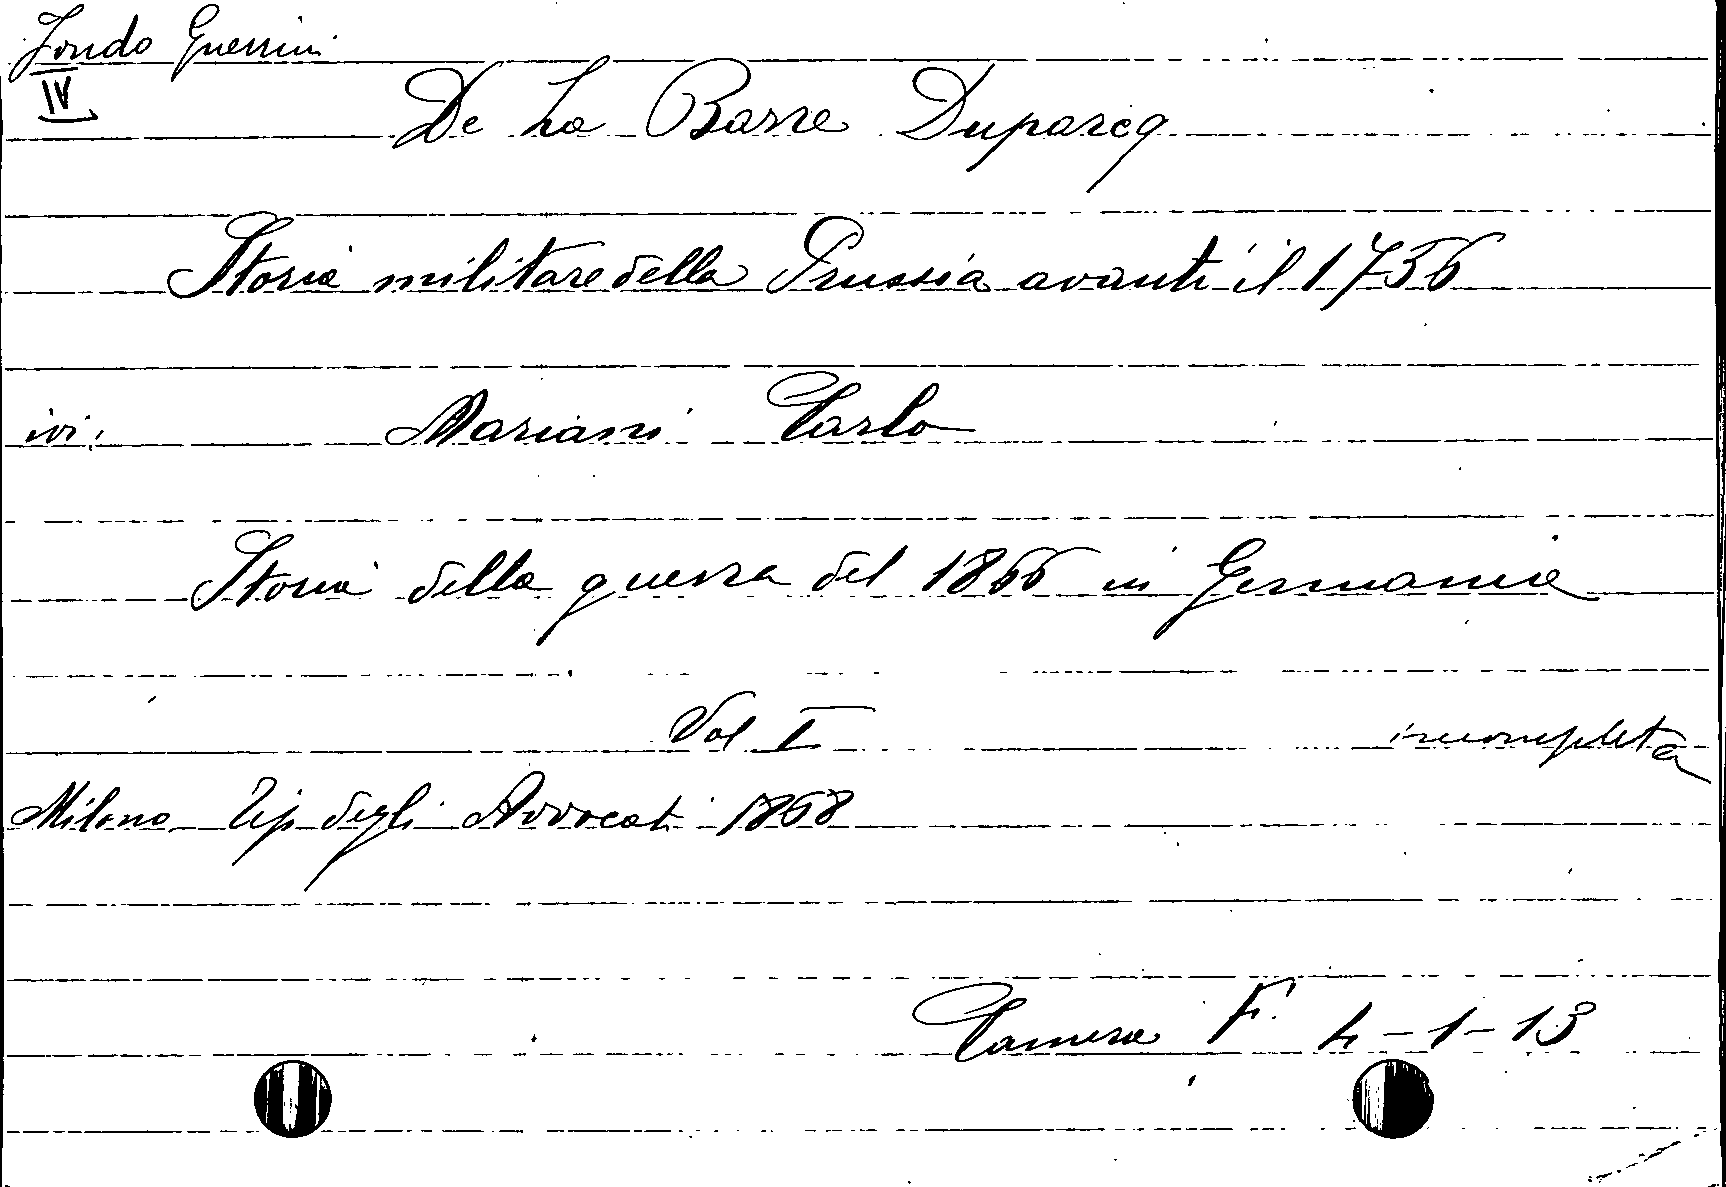 Fondo Guerrini
IV
De La Barre Duparcq
Storia militare della Prussia avanti il 1756
ivi: Mariani Carlo
Storia della guerra del 1866 in Germania
Vol I incompleta
Milano Tip degli Avvocati 1868
Camera F. 4-1-13